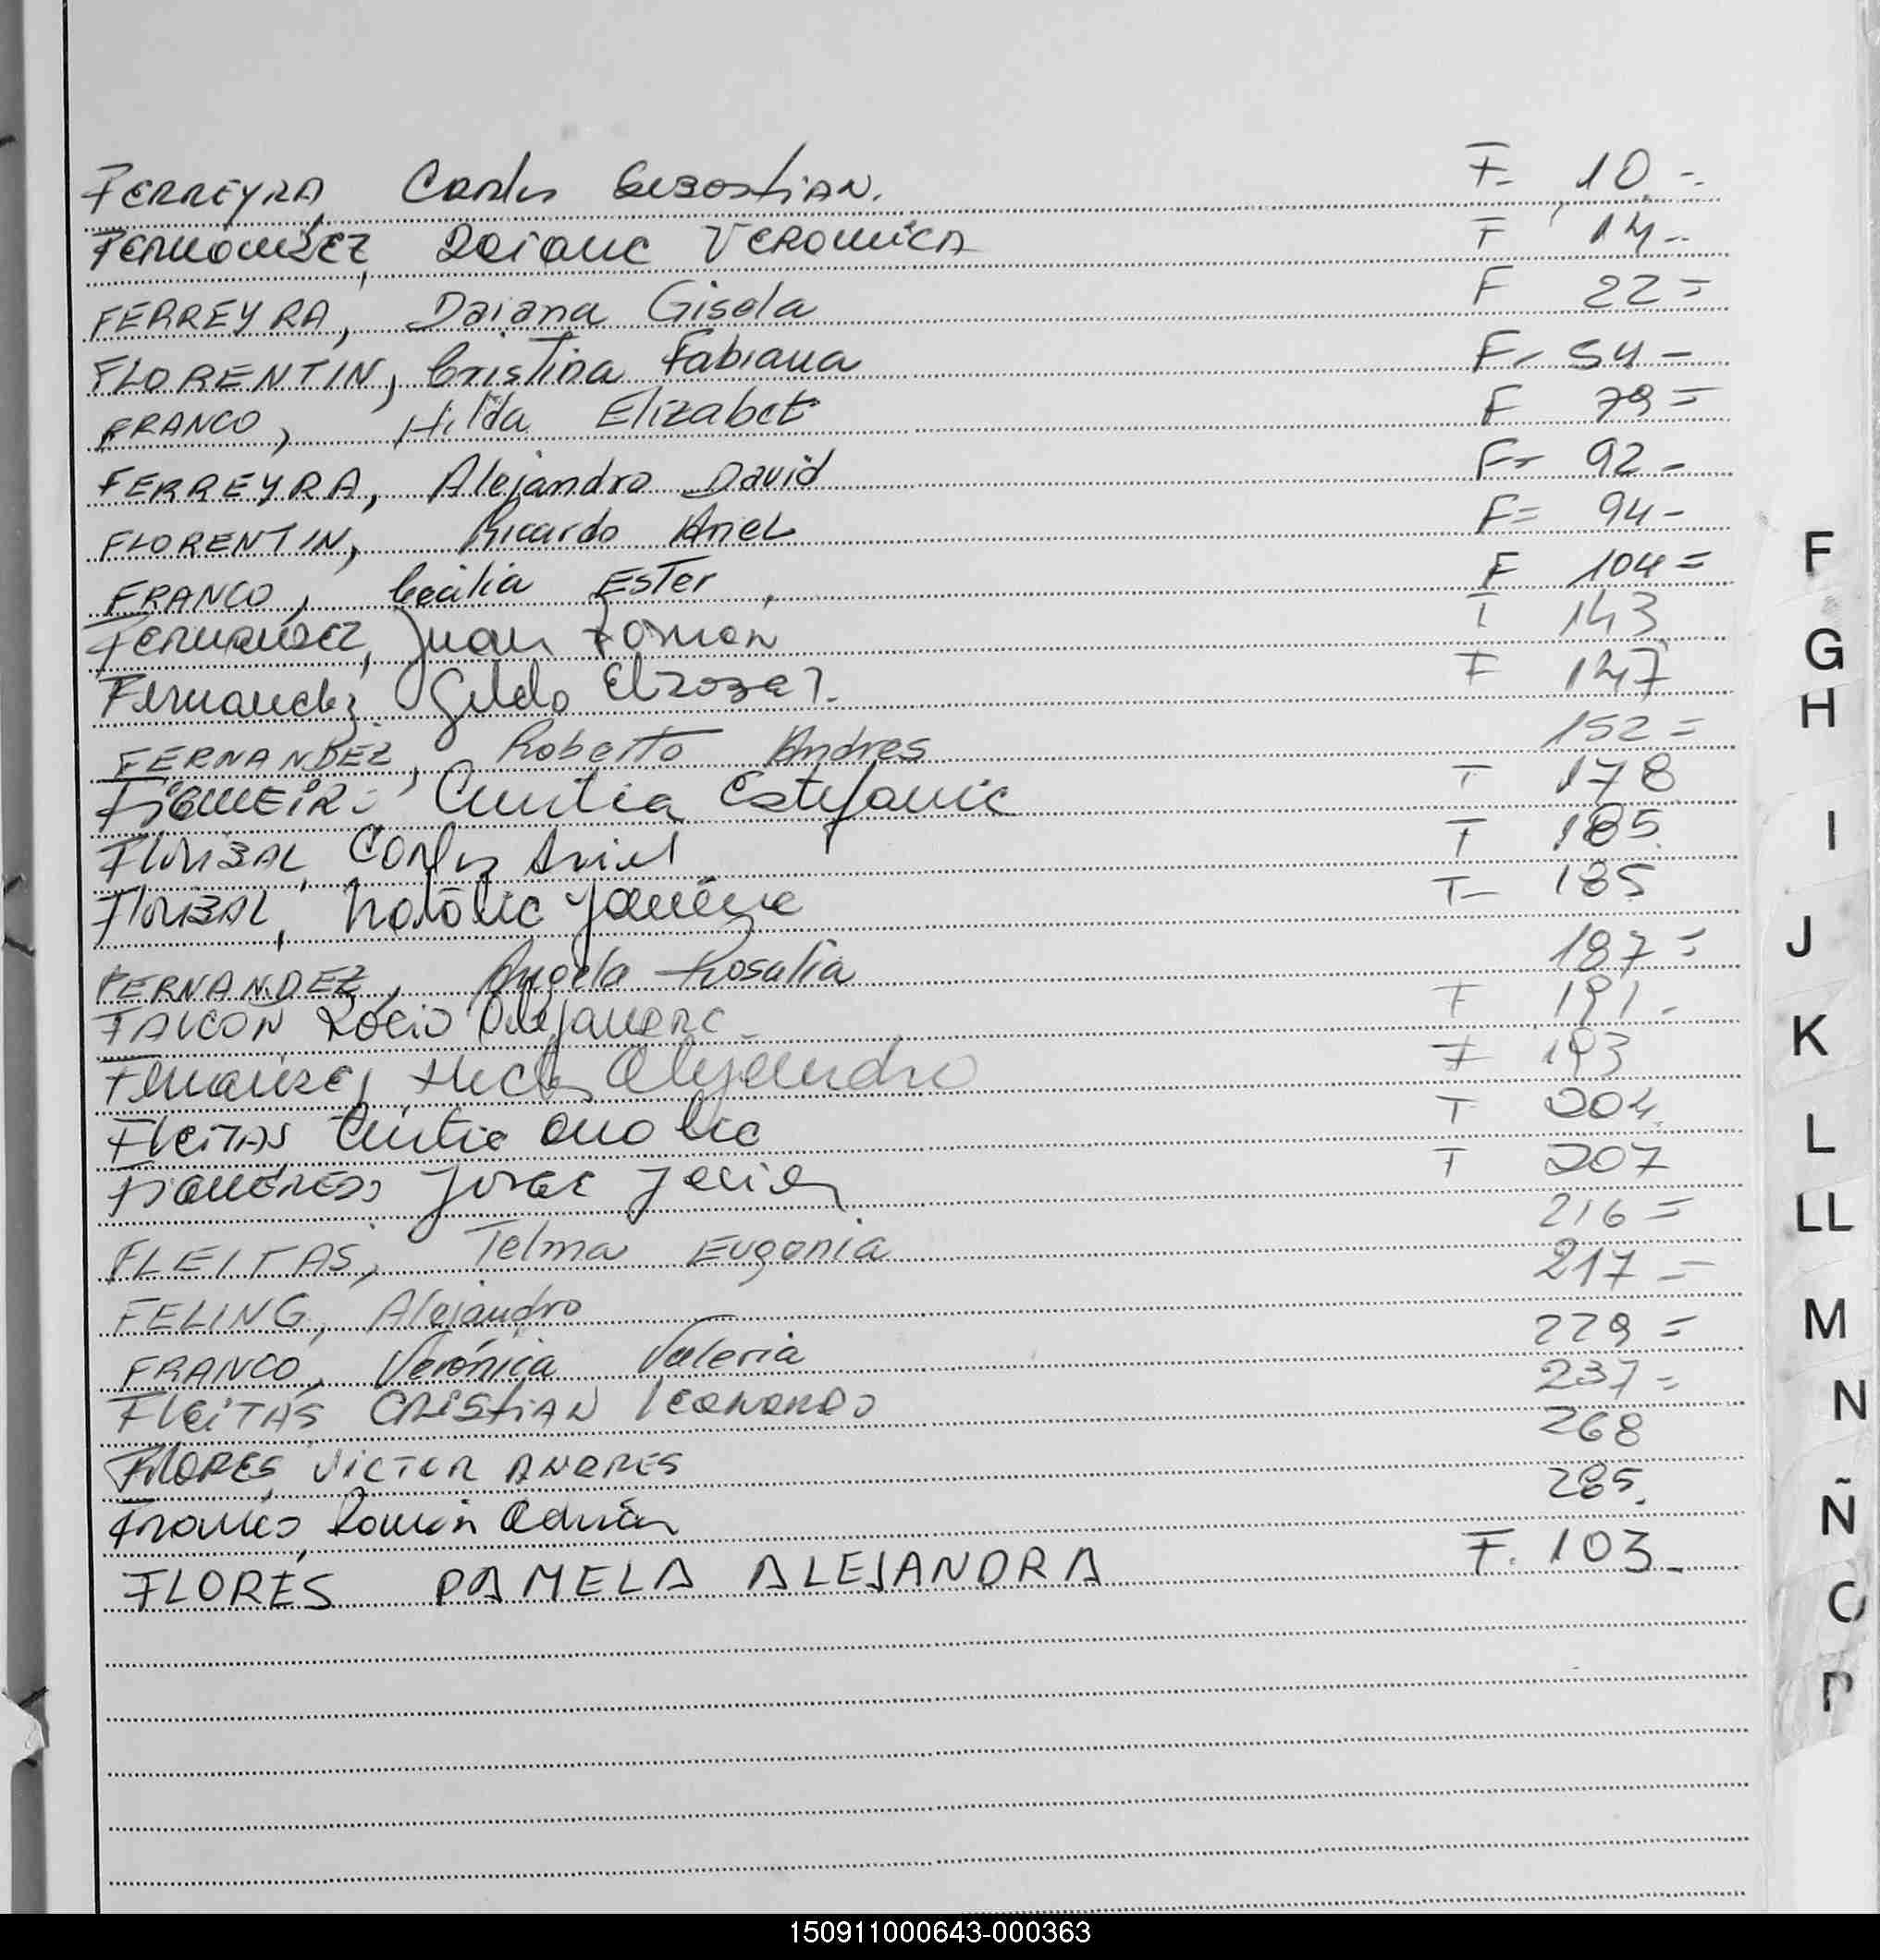 FERREYRA, Carlos Sebastian. F- 10 =
FERNANDEZ, Daiana VERONICA F 14 =
FERREYRA, Daiana Gisela F 22 =
FLORENTIN, Cristina Fabiana F- 54 -
FRANCO, Hilda Elizabet F 79 =
FERREYRA, Alejandro David F- 92 -
FLORENTIN, Ricardo Ariel F= 94 -
FRANCO, Cecilia Ester F 104 =
Fernandez, Juan Roman F 143
Fernandez F 147
FERNANDEZ, Roberto Andres 152 =
Cintia Estefania F 178
FLORIBAL, Carlos Ariel F 185
FLORIBAL, Natalia F- 185
FERNANDEZ, Angela Rosalia 187 =
FALCON Rocio Alejandra F 191 -
Fernandez, Hector Alejandro F 193
FLEITAS, Cintia Analia F 204
FIGUEREDO Jorge Javier F 207
FLEITAS, Telma Eugenia 216 =
FELING, Alejandro 217 =
FRANCO, Verónica Valeria 229 =
FLEITAS CRISTIAN Leonardo 237 =
FLORES, VICTOR ANDRES 268
Franco, Román Adrián 285
FLORES PAMELA ALEJANDRA F. 103 -
F
G
H
I
J
K
L
LL
M
N
Ñ
O
P
150911000643-000363